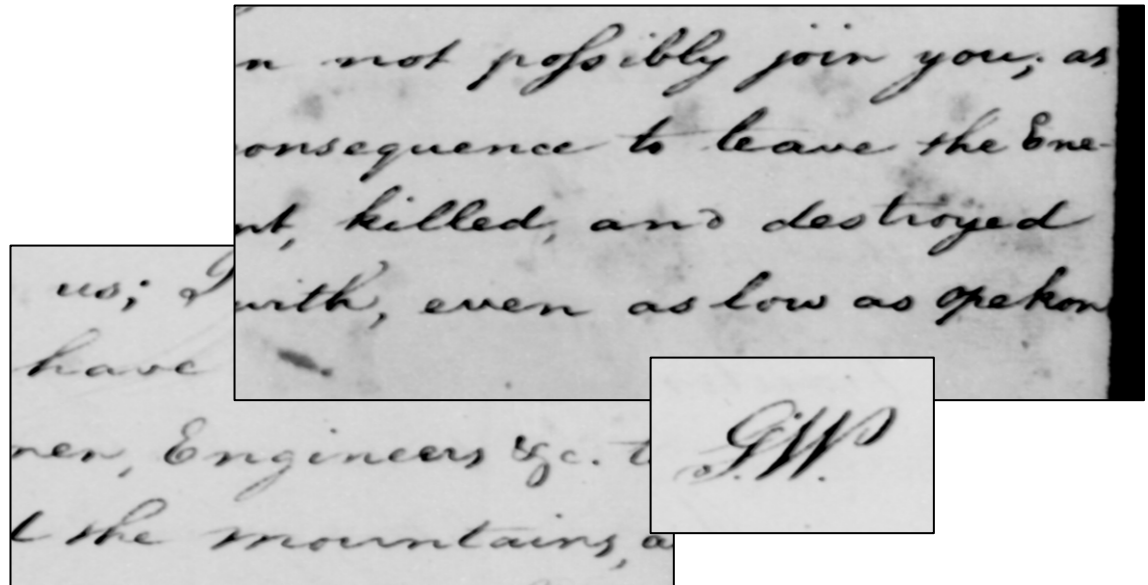 n not possibly join you; as
onsequence to leave the Ene-
nt, killed, and destroyed
with, even as low as Opekon
us; I
have
men, Engineers &c. t
t the mountains, a
G.W.